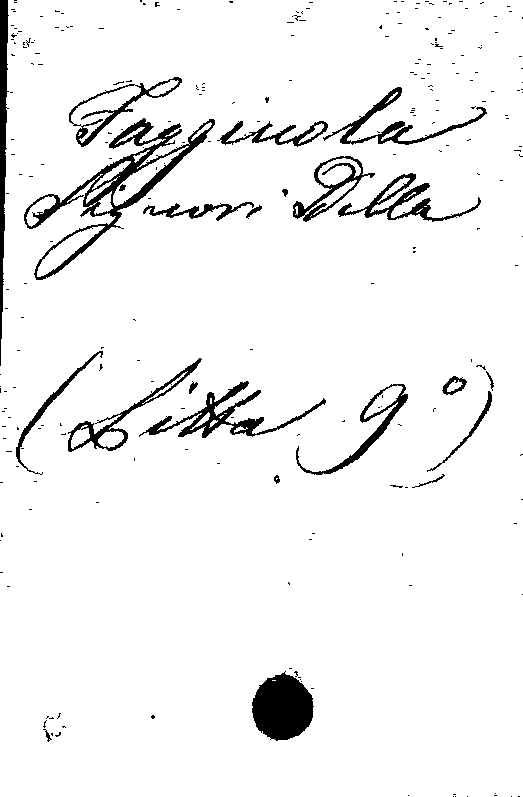 Faggiuola
Signori Della
(Litta 9°)